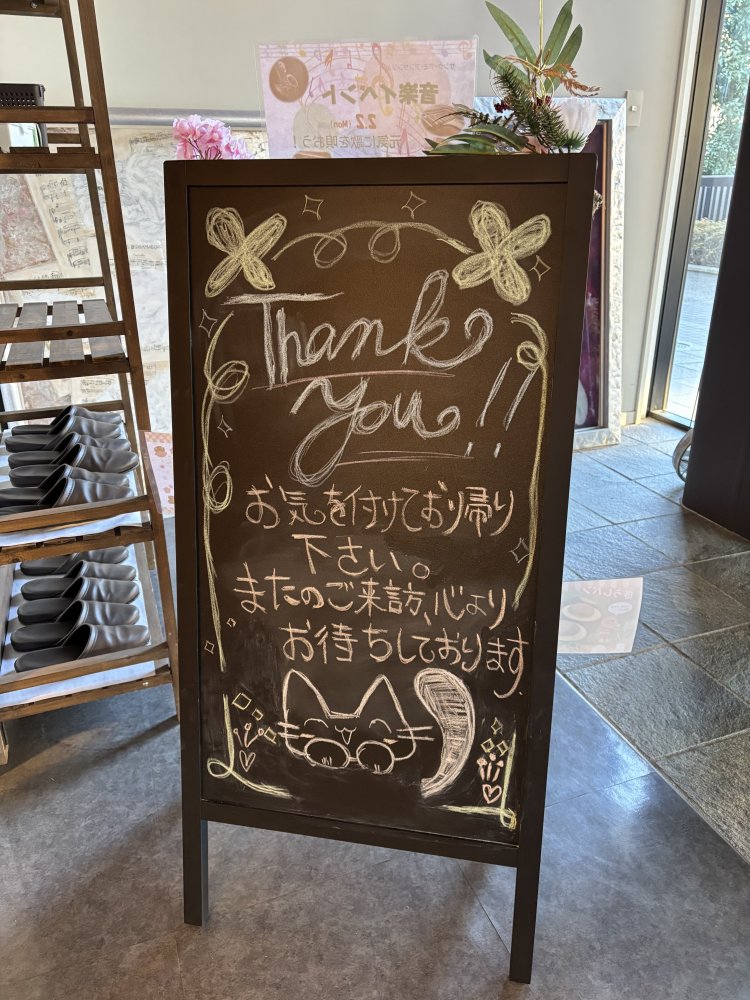 音楽イベント
2.2 (Mon)
元気に歌を唄おう！
Thank
you!!
お気を付けており帰り
下さい。
またのご来訪、心より
お待ちしております。